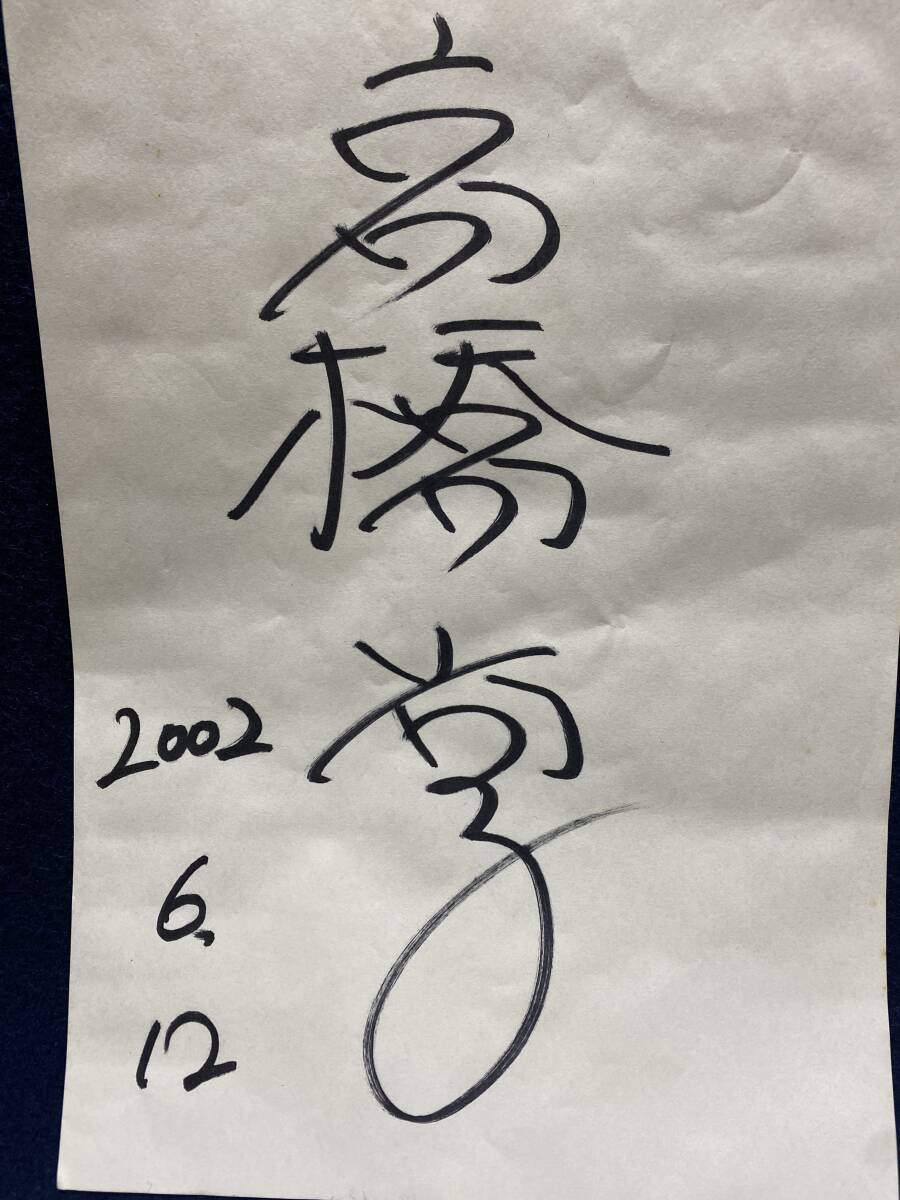 高橋尚子
2002
6.
12